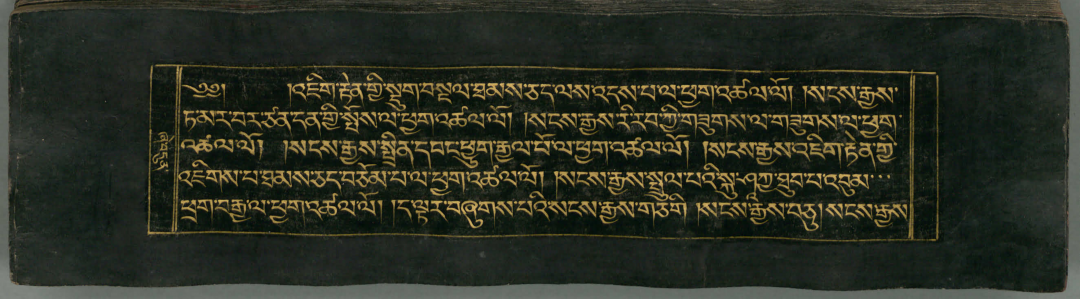 ༄༅། །འཇིག་རྟེན་གྱི་སྡུག་བསྔལ་ཐམས་ཅད་ལས་འདས་པ་ལ་ཕྱག་འཚལ་ལོ། །སངས་རྒྱས་
ཏ་མ་ར་བར་ཙནྡན་གྱི་སྤོས་ལ་ཕྱག་འཚལ་ལོ། །སངས་རྒྱས་རི་རབ་ཀྱི་གཟུགས་ལ་གཟུགས་ལ་ཕྱག་
འཚལ་ལོ། །སངས་རྒྱས་སྤྲིན་དབང་ཕྱུག་རྒྱལ་པོ་ལ་ཕྱག་འཚལ་ལོ། །སངས་རྒྱས་འཇིག་རྟེན་གྱི་
འཇིགས་པ་ཐམས་ཅད་བཅོམ་པ་ལ་ཕྱག་འཚལ་ལོ། །སངས་རྒྱས་སྤྲུལ་པའི་སྐུ་ཤཀྱ་ཐུབ་པ་འབུམ་
ཕྲག་བརྒྱ་ལ་ཕྱག་འཚལ་ལོ། །ད་ལྟར་བཞུགས་པའི་སངས་རྒྱས་གཅིག །སངས་རྒྱས་བཅུ། སངས་རྒྱས་